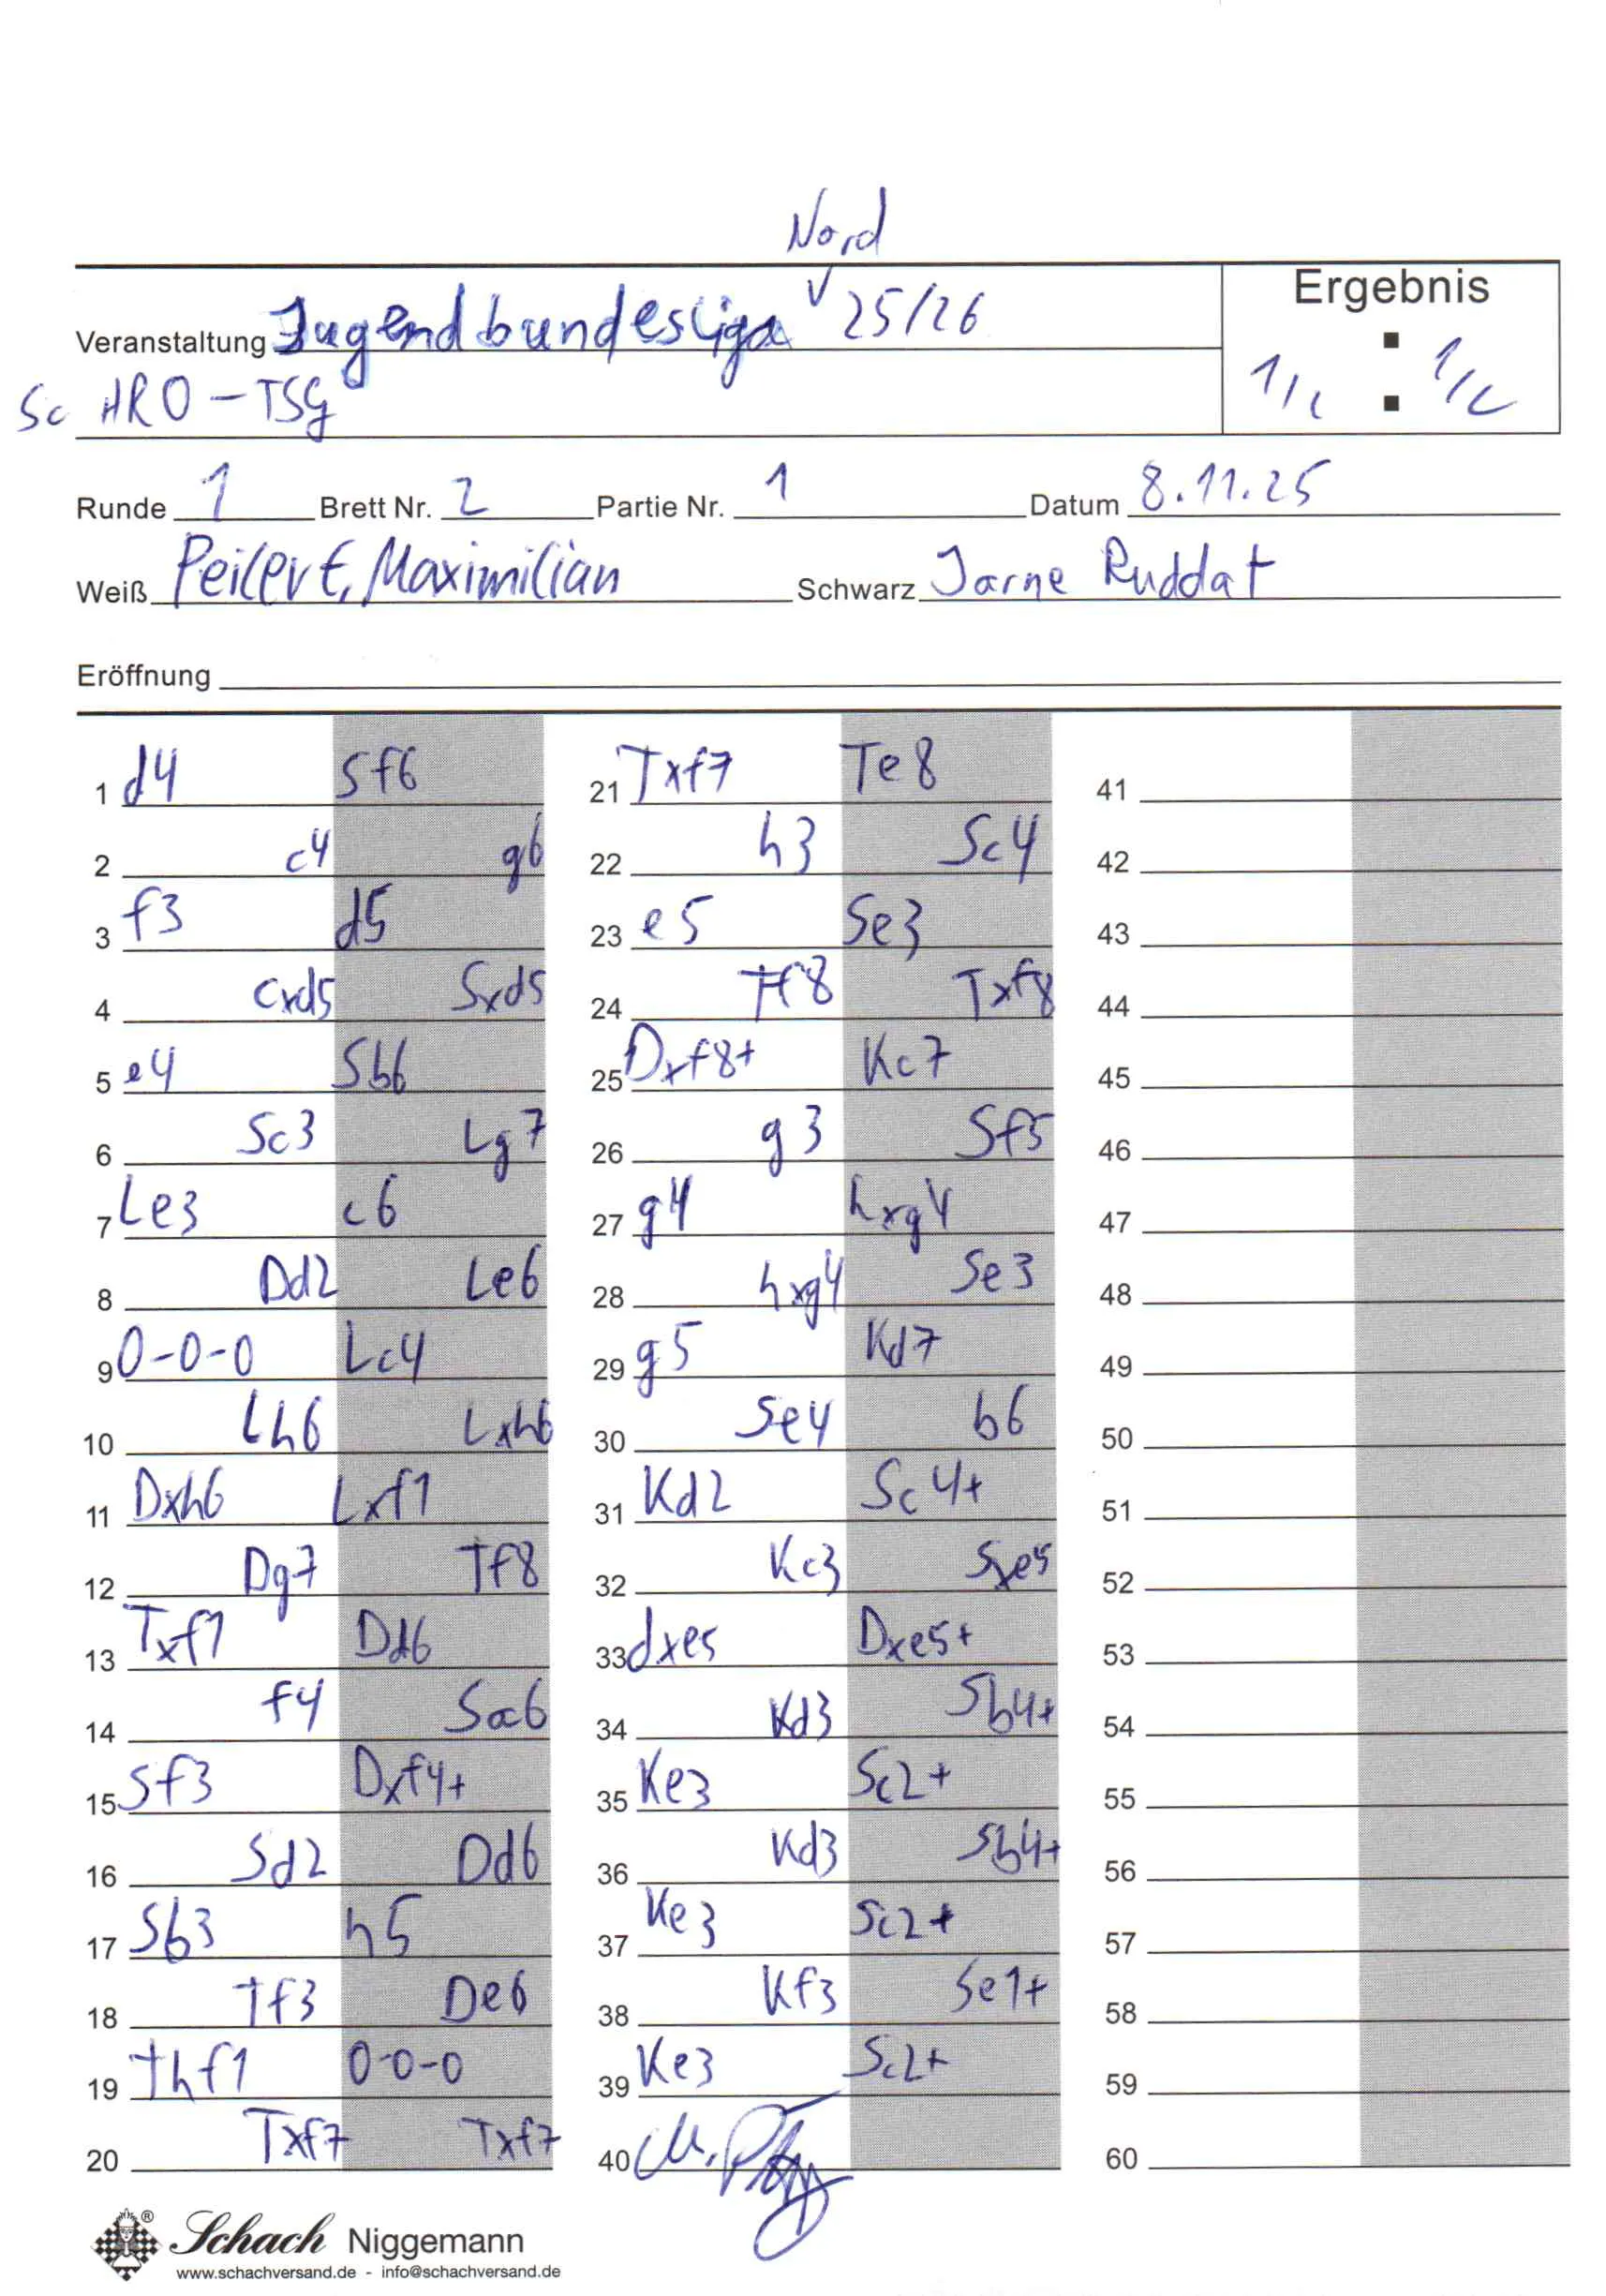 Nord
Veranstaltung Jugendbundesliga 25/26
Ergebnis
Sc HRO - TSG
1/2 : 1/2
Runde 1 Brett Nr. 2 Partie Nr. 1 Datum 8.11.25
Weiß Peilert, Maximilian Schwarz Jarne Ruddat
Eröffnung
1 d4 Sf6 21 Txf7 Te8 41
2 c4 g6 22 h3 Sc4 42
3 f3 d5 23 e5 Se3 43
4 cxd5 Sxd5 24 Tf8 Txf8 44
5 e4 Sb6 25 Dxf8+ Kc7 45
6 Sc3 Lg7 26 g3 Sf5 46
7 Le3 c6 27 g4 hxg4 47
8 Dd2 Le6 28 hxg4 Se3 48
9 0-0-0 Lc4 29 g5 Kd7 49
10 Lh6 Lxh6 30 Se4 b6 50
11 Dxh6 Lxf1 31 Kd2 Sc4+ 51
12 Dg7 Tf8 32 Kc3 Sxe5 52
13 Txf1 Dd6 33 dxe5 Dxe5+ 53
14 f4 Sa6 34 Kd3 Sb4+ 54
15 Sf3 Dxf4+ 35 Ke3 Sc2+ 55
16 Sd2 Dd6 36 Kd3 Sb4+ 56
17 Sb3 h5 37 Ke3 Sc2+ 57
18 Tf3 De6 38 Kf3 Se1+ 58
19 Thf1 0-0-0 39 Ke3 Sc2+ 59
20 Txf7 Txf7 40 60
Schach Niggemann
www.schachversand.de - info@schachversand.de